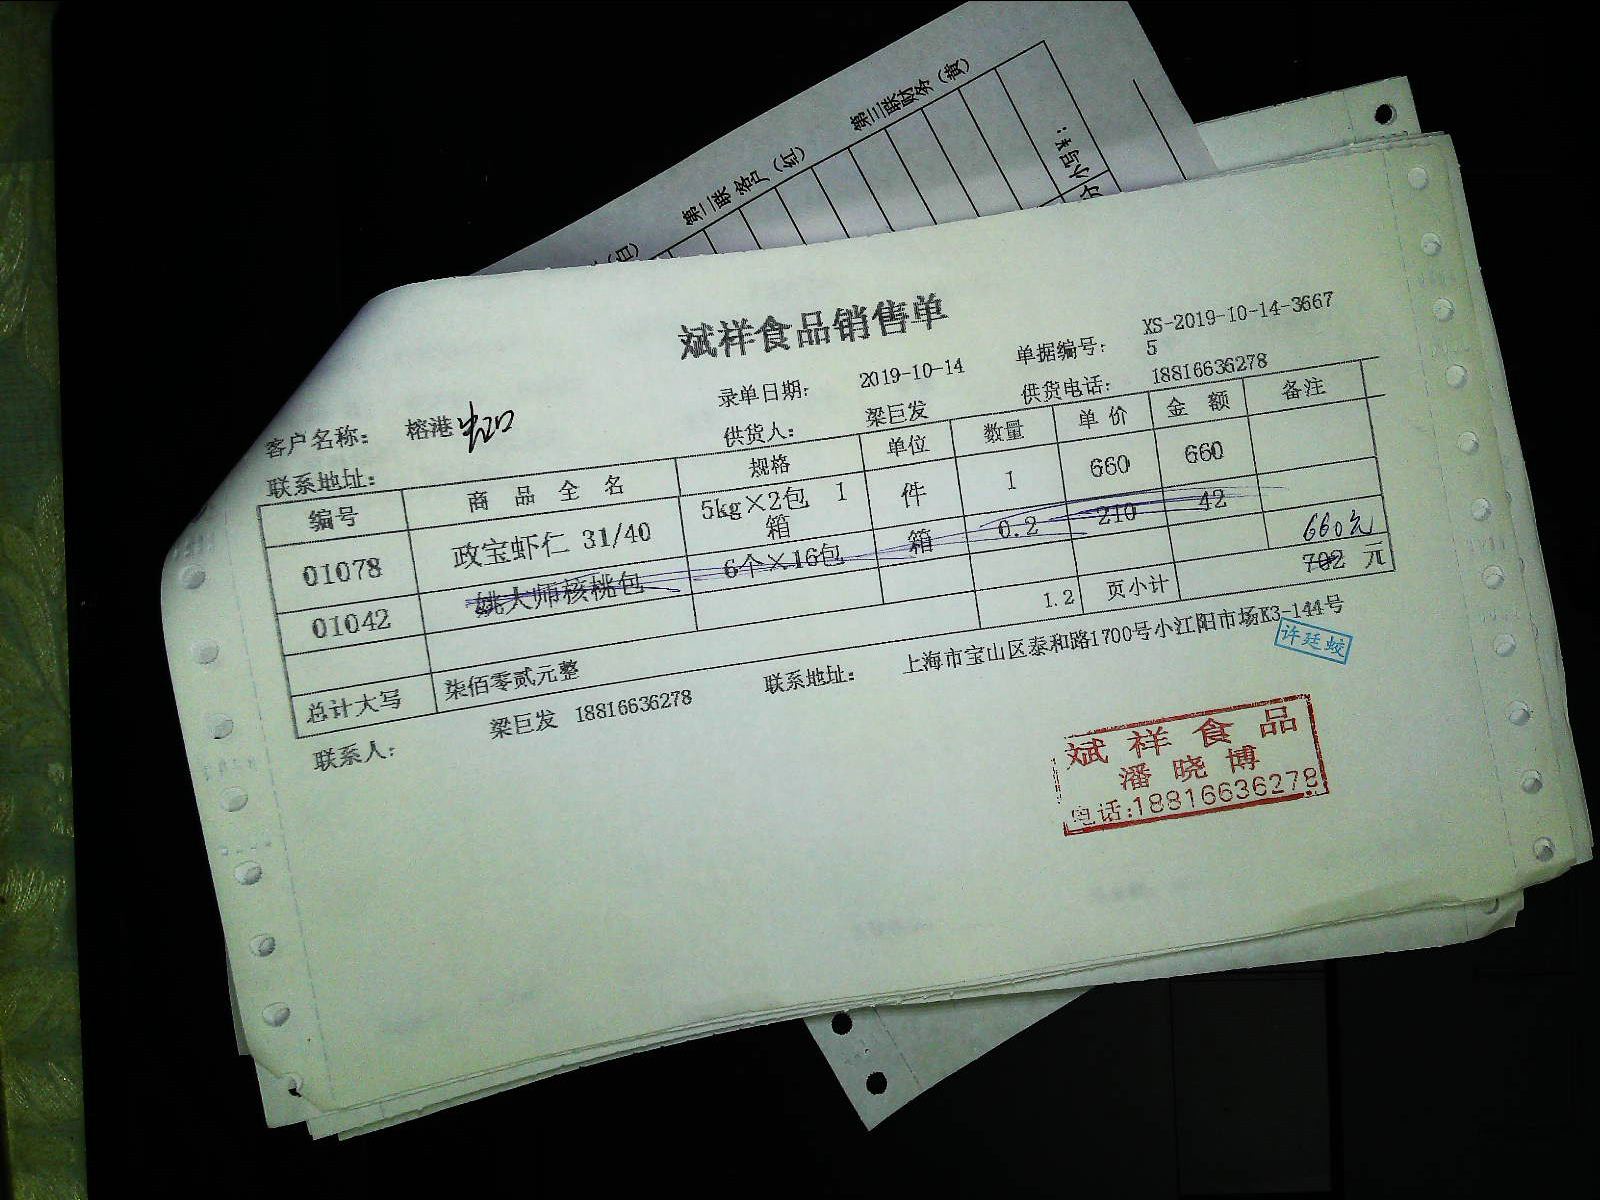 第三联财务（黄）
第二联 客户（红）
（白）
小写¥：
斌祥食品销售单
录单日期： 2019-10-14 单据编号： XS-2019-10-14-3667
5
客户名称： 榕港 供货人： 梁巨发 供货电话： 18816636278
联系地址：
编号 商 品 全 名 规格 单位 数量 单 价 金 额 备注
01078 政宝虾仁 31/40 5kg×2包 1 件 1 660 660
箱
01042 姚大师核桃包 6个×16包 箱 0.2 210 42
660元
1.2 页小计 702 元
总计大写 柒佰零贰元整
联系人： 梁巨发 18816636278 联系地址： 上海市宝山区泰和路1700号小江阳市场K3-144号
许廷蛟
斌祥食品
潘晓博
电话:18816636278